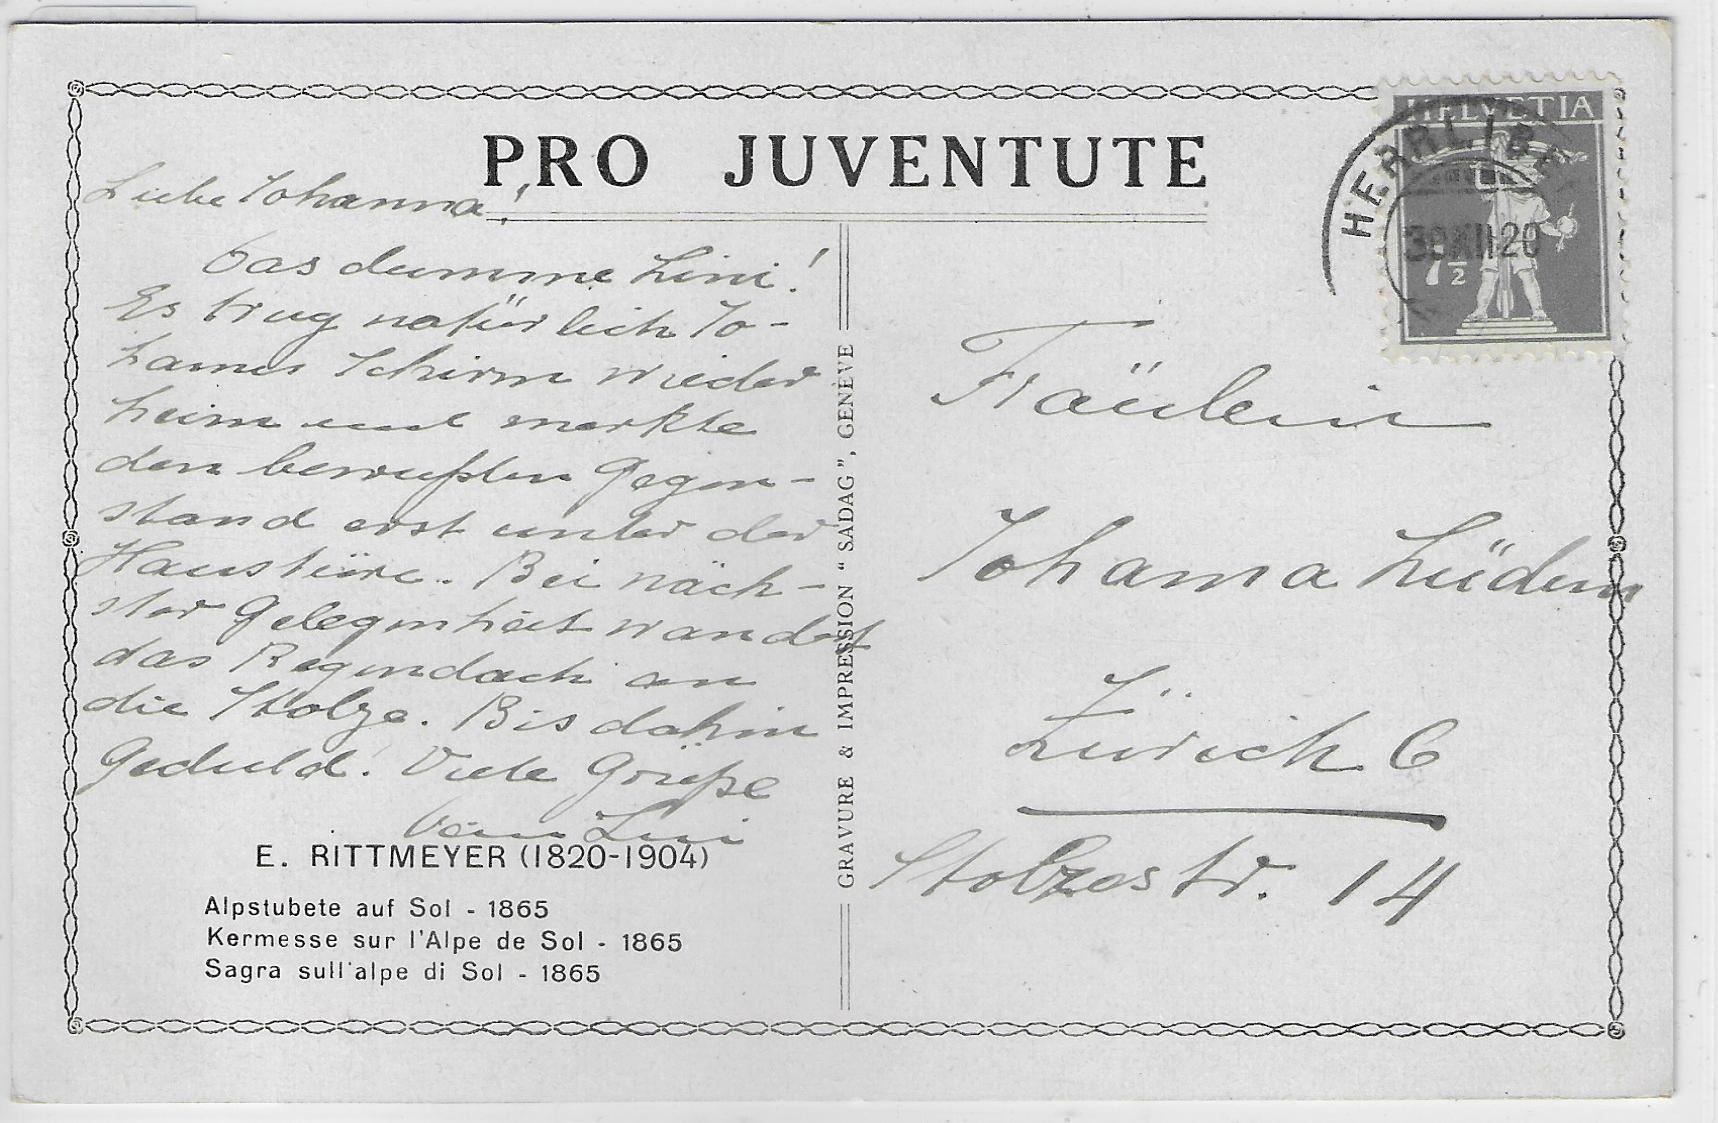 PRO JUVENTUTE
Liebe Johanna!
Das dumme Lini!
Es trug natürlich Jo-
hannes Schirm wieder
heim und merkte
den bewußten Gegen-
stand erst unter der
Haustüre. Bei näch-
ster Gelegenheit wandert
das Regendach an
die Stolze. Bis dahin
Geduld! Viele Grüße
vom Lini
E. RITTMEYER (1820-1904)
Alpstubete auf Sol - 1865
Kermesse sur l'Alpe de Sol - 1865
Sagra sull'alpe di Sol - 1865
GRAVURE & IMPRESSION "SADAG", GENÈVE
HELVETIA
7½
HERRLIBE
30 XII 20
Fräulein
Johanna
Zürich 6
Stolzestr. 14